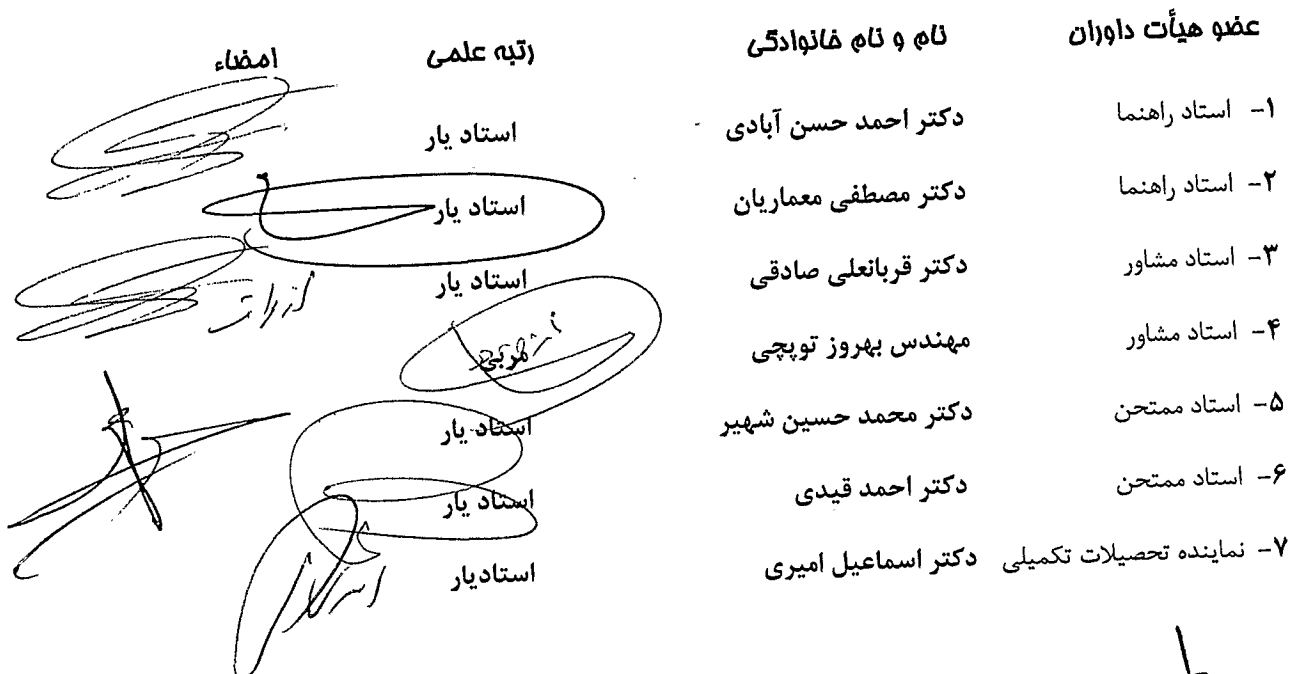 عضو هیأت داوران نام و نام خانوادگی رتبه علمی امضاء
۱- استاد راهنما دکتر احمد حسن آبادی استاد یار
۲- استاد راهنما دکتر مصطفی معماریان استاد یار
۳- استاد مشاور دکتر قربانعلی صادقی استاد یار
۴- استاد مشاور مهندس بهروز توپچی مربی
۵- استاد ممتحن دکتر محمد حسین شهیر استاد یار
۶- استاد ممتحن دکتر احمد قیدی استاد یار
۷- نماینده تحصیلات تکمیلی دکتر اسماعیل امیری استادیار